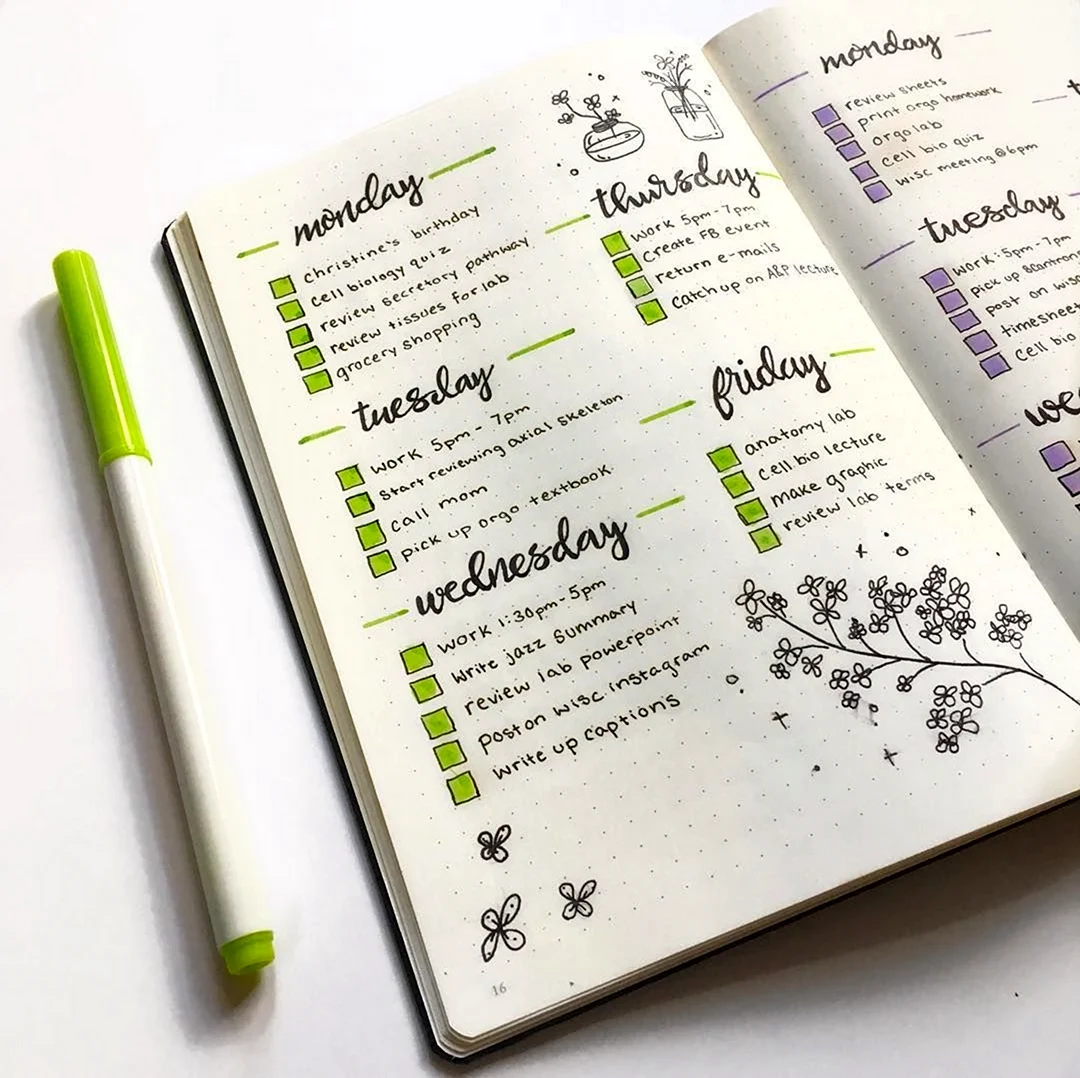 monday
christine's birthday
cell biology quiz
review secretory pathway
review tissues for lab
grocery shopping
tuesday
work 5pm - 7pm
start reviewing axial skeleton
call mom
pick up orgo textbook
wednesday
work 1:30pm - 5pm
write jazz summary
review lab powerpoint
post on wisc instagram
write up captions
16
thursday
work 5pm - 7pm
create FB event
return e-mails
catch up on A&P lecture
friday
anatomy lab
cell bio lecture
make graphic
review lab terms
monday
review sheets
print orgo homework
orgo lab
cell bio quiz
wisc meeting @ 6pm
tuesday
work: 5pm - 7pm
pick up
post on wisc
timesheet
cell bio
we